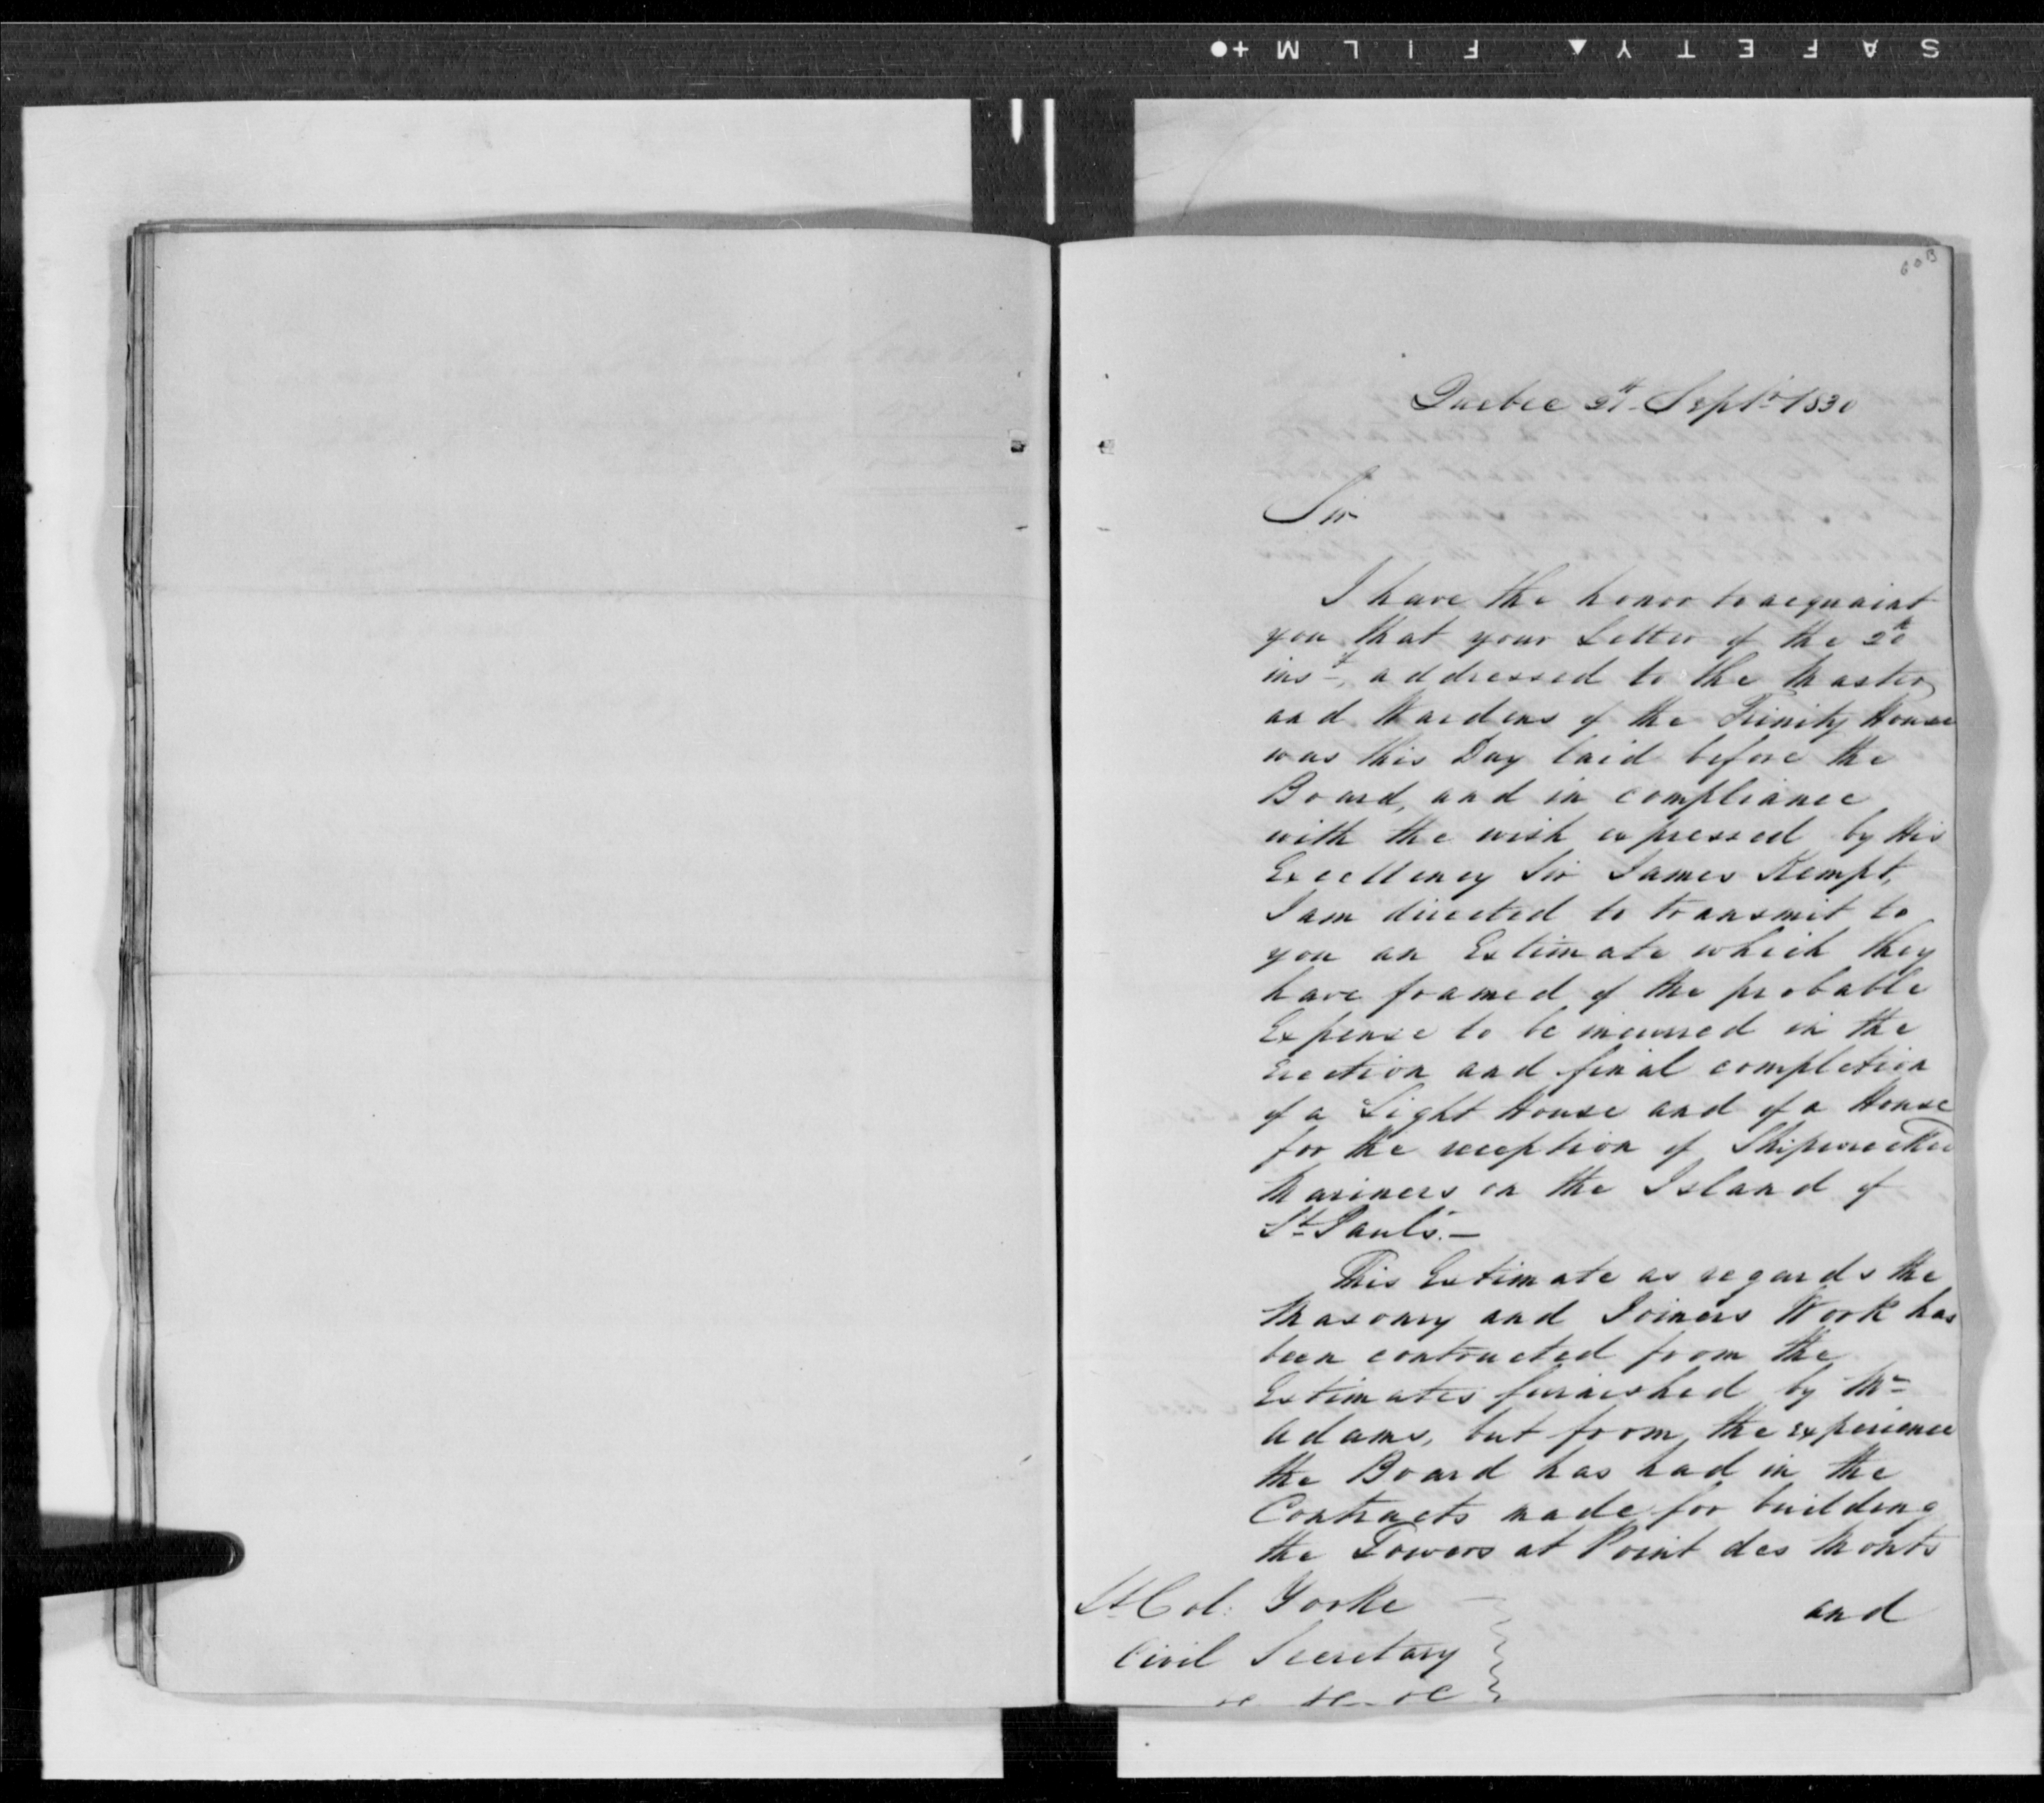 SAFETY ▲ FILM +●
60B
Quebec 21st Septr 1830
Sir
I have the honor to acquaint
you that your Letter of the 20th
inst, addressed to the Master
and Wardens of the Trinity House
was this Day laid before the
Board, and in compliance
with the wish expressed by His
Excellency Sir James Kempt,
I am directed to transmit to
you an Estimate which they
have framed of the probable
Expense to be incurred in the
Erection and final completion
of a Light House and of a House
for the reception of Shipwrecked
Mariners on the Island of
St Paul's.—
This Estimate as regards the
Masonry and Joiners Work has
been contructed from the
Estimates furnished by Mr
Adams, but from the experience
the Board has had in the
Contracts made for building
the Towers at Point des Monts
and
Lt Col: Yorke
Civil Secretary
&c &c &c